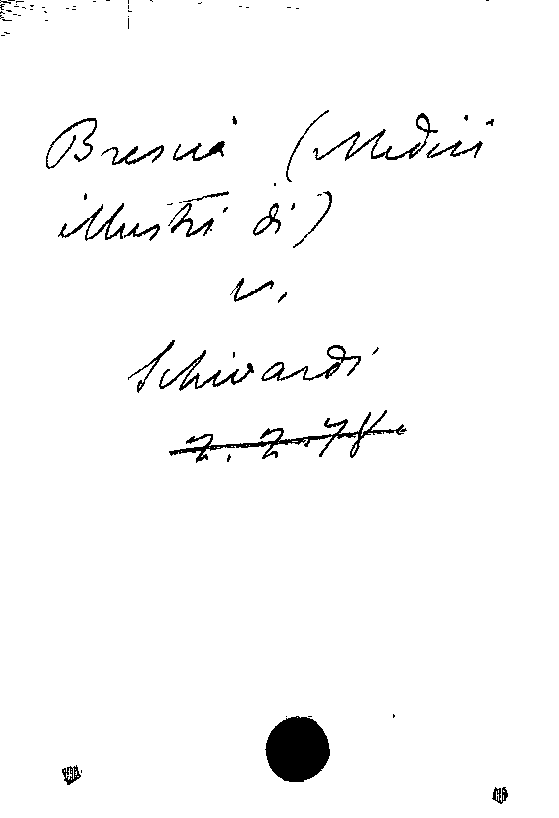 Brescia (Medici
illustri di)
v.
Schivardi
Z. Z. 78.